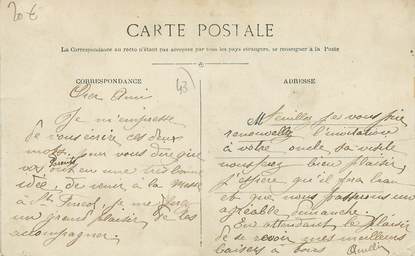 20 €
CARTE POSTALE
La Correspondance au recto n'étant pas acceptée par tous les pays étrangers, se renseigner à la Poste
CORRESPONDANCE
43
Cher Ami
Je m'empresse
de vous écrire ces deux
mots pour vous dire que
vos parents ont eu une très bonne
idée de venir à la
à St je me ferai
un grand plaisir de les
accompagner.
ADRESSE
Veuillez je vous prie
renouveller l'invitation
à votre oncle sa visite
nous fera bien plaisir
j'espère qu'il fera beau
et que nous passerons un
agréable dimanche.
En attendant le plaisir
de se revoir mes meilleurs
baisers à tous